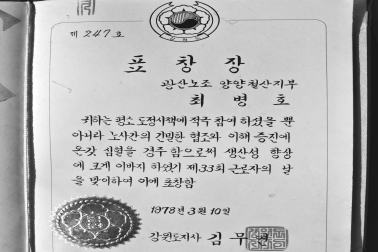 제 247 호
표 창 장
광산노조 양양철산지부
최 병 호
귀하는 평소 도정시책에 적극 참여 하셨을 뿐
아니라 노사간의 긴밀한 협조와 이해 증진에
온갖 심혈을 경주 함으로써 생산성 향상
에 크게 이바지 하셨기 제33회 근로자의 날
을 맞이하여 이에 표창함
1978 년 3 월 10 일
강원도지사 김 무